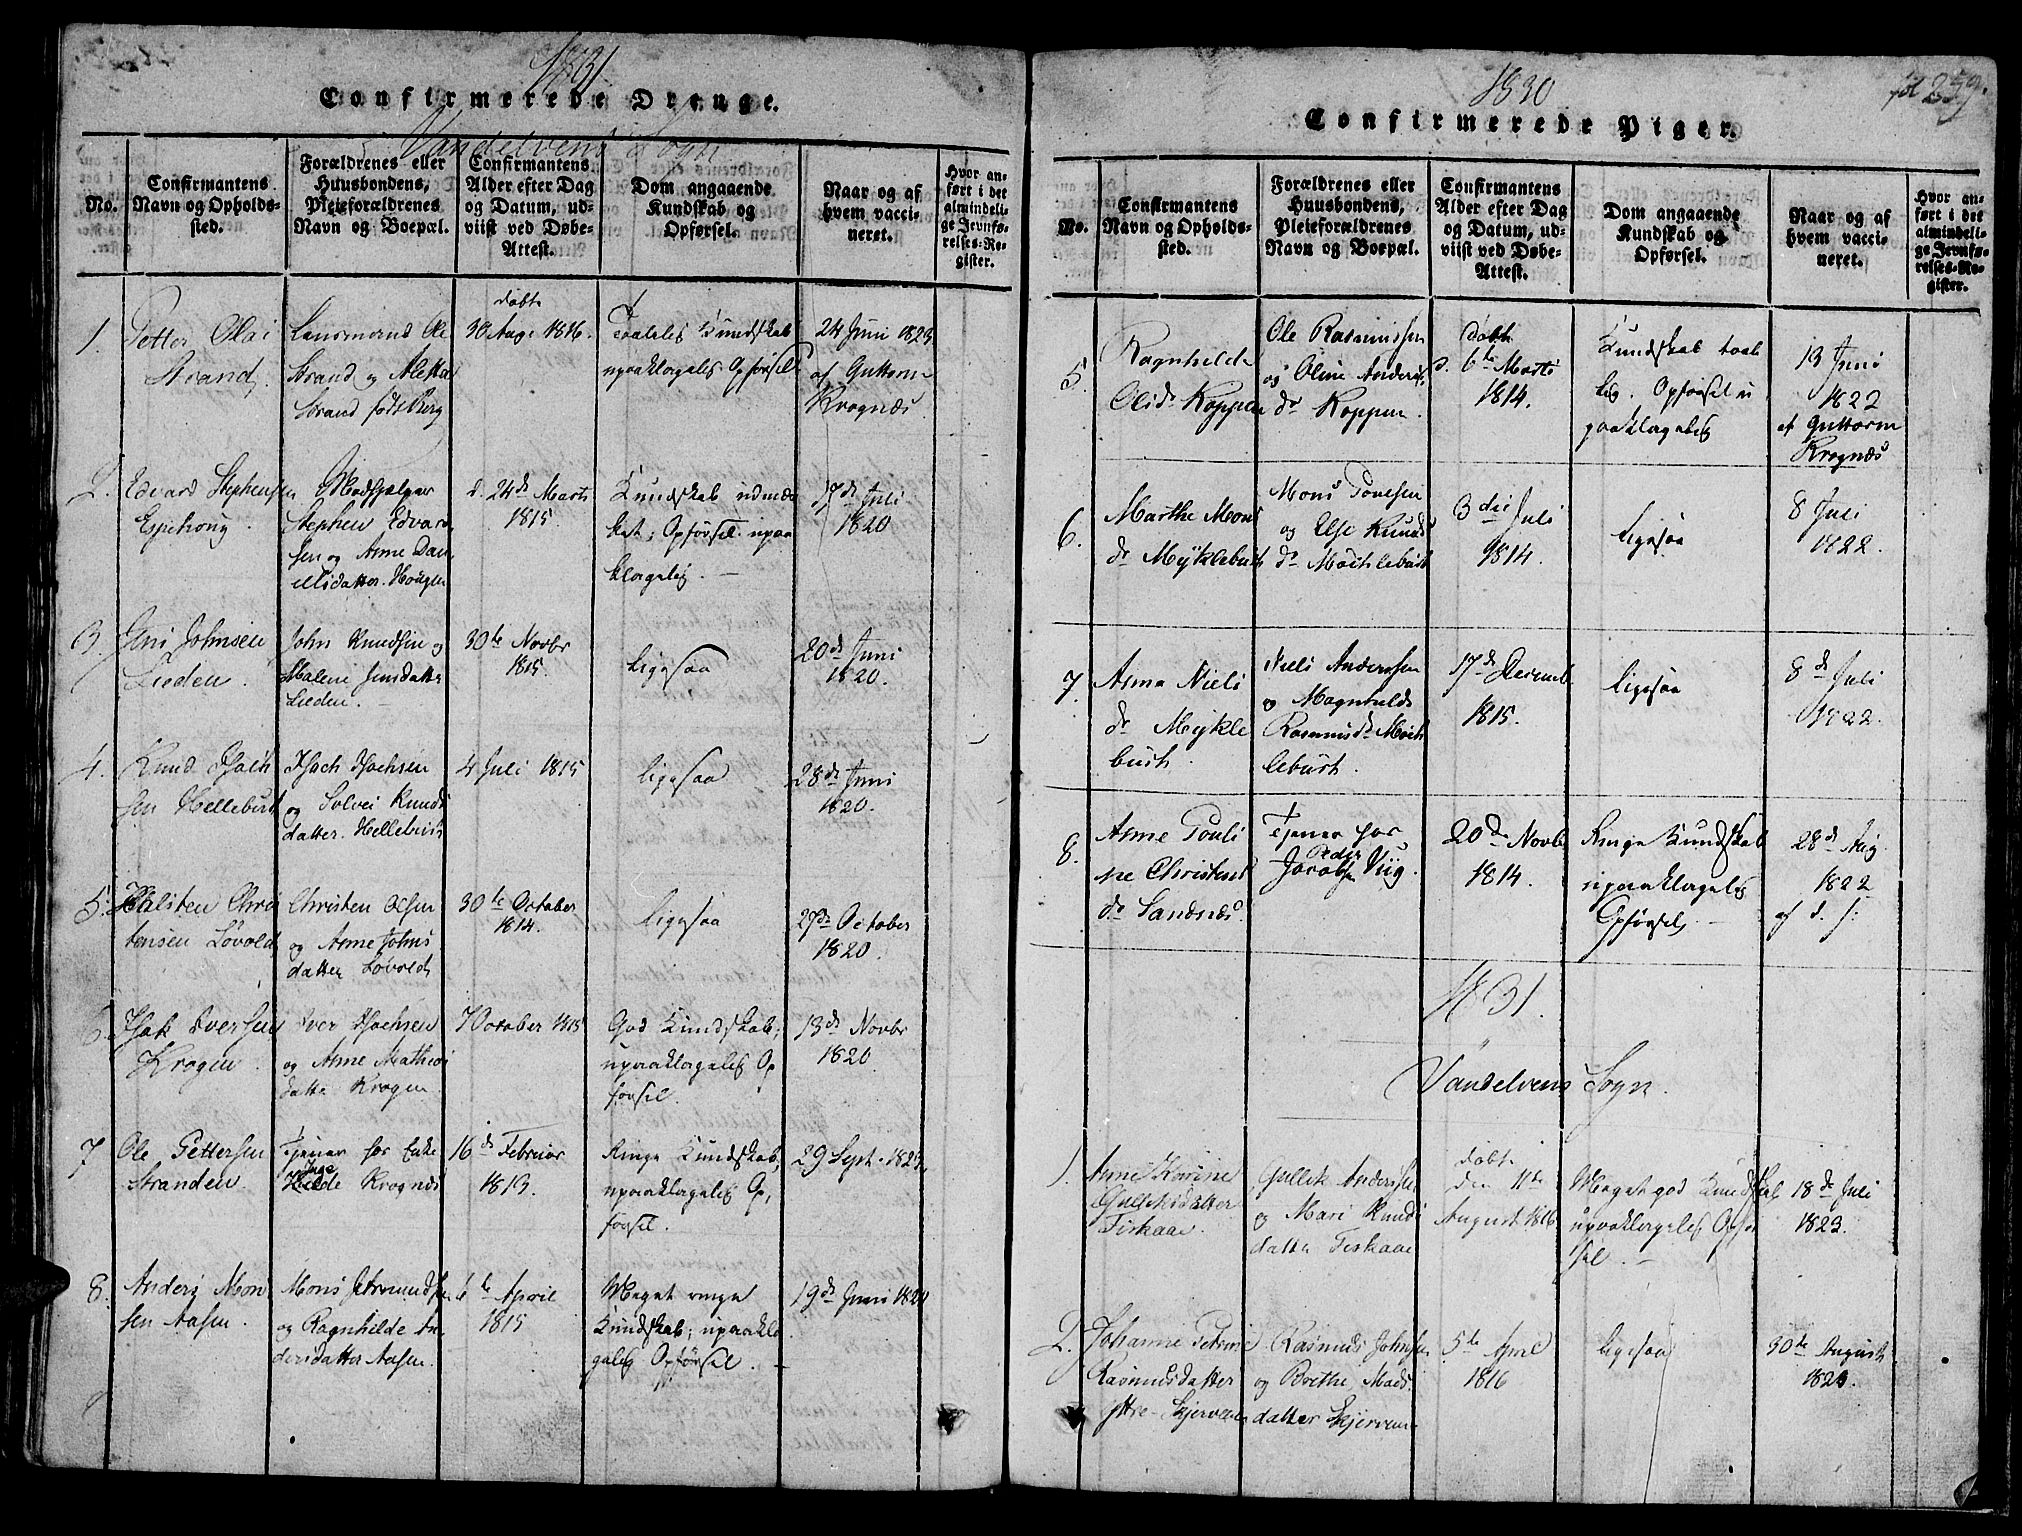 1831
Confirmerede Drenge.
Vandelvens Sogn
No.
Confirmantens
Navn og Opholds-
sted.
Forældrenes eller
Huusbondens,
Pleieforældrenes
Navn og Boepæl.
Confirmantens
Alder efter Dag
og Datum, ud-
viist ved Døbe-
Attest.
Dom angaaende
Kundskab og
Opførsel.
Naar og af
hvem vacci-
neret.
Hvor an-
ført i det
almindeli-
ge Jevnfø-
relses-Re-
gister.
1.
Petter Olai
Strand.
Lensmand Ole
Strand og Aletta
Strand født Berg
døbt
30 Aug. 1816.
Taalelig Kundskab
upaaklagelig Opførsel
24 Juni 1823
af Guttorm
Krognæs
2.
Edvard Stephensen
Espehoug.
Stephen Edvard
sen og Anne Dan
ielsdatter Hougen
d. 24de Marts
1815.
Kundskab udmær
ket; Opførsel upaa
klagelig. -
17de Juli
1820
3.
Jens Johnsen
Lieden.
John Knudsen og
Malene Jensdatter
Lieden. -
30te Novbr
1815.
Ligesaa
20de Juni
1820.
4.
Knud Isach
sen Hellebust
Isach Isachsen
og Solvei Knuds
datter Hellebust
4 Juli 1815
ligesaa
28de Juni
1820.
5.
Halsten Chris
tensen Løvold
Christen Olsen
og Anne Johns
datter Løvold
30te October
1814.
Ligesaa
27de October
1820.
6.
Isak Iversen
Krogen.
Iver Isachsen
og Anne Mathias
datter Krogen.
7 October 1815
God Kundskab;
upaaklagelig Op
førsel.
13de Novbr
1820.
7
Ole Pettersen
Stranden.
Tjener for Enke
Inge
Krognæs
16de Februar
1813.
Ringe Kundskab,
upaaklagelig Op,
førsel.
29 Sept. 1823.
8.
Anders Mon
sen Aasen.
Mons
og Ragnhilde An
dersdatter Aasen.
6te April
1815
Meget ringe
Kundskab; upaakla
gelig Opførsel. -
19de Juni 1820
1830
fol 259.
Confirmerede Piger.
No.
Confirmantens
Navn og Opholds-
sted.
Forældrenes eller
Huusbondens,
Pleieforældrenes
Navn og Boepæl.
Confirmantens
Alder efter Dag
og Datum, ud-
viist ved Døbe-
Attest.
Dom angaaende
Kundskab og
Opførsel.
Naar og af
hvem vacci-
neret.
Hvor an-
ført i det
almindeli-
ge Jevnfø-
relses-Re-
gister.
5.
Ragnhilde
Olsdr Koppen
Ole Rasmussen
og Oline Anders
dr Koppen.
døbt
d. 6te Marts
1814.
Kundskab taale
lig. Opførsel u
paaklagelig
13 Juni
1822
af Guttorm
Krognæs
6.
Marthe Mons
dr Mÿklebust
Mons Povelsen
og Else Knuds
dr Mochlebust
3die Juli
1814.
Ligesaa
8 Juli
1822.
7
Anna Niels
dr Mÿkle
bust.
Niels Anderssen
og Magnhilde
Rasmusdr Moch
lebust.
17de Decemb
1815.
Ligesaa
8de Juli
1822.
8.
Anne Pouli
ne Christens
dr Sandnæs.
Tjener for
Peder
Jacobsen Viig.
20de Novbr
1814.
Ringe Kundskab
upaaklagelig
Opførsel. -
28de Aug.
1822
af d. s:
1831.
Vandelvens Sogn.
1.
Anne Karine
Gulliksdatter
Fiskaae.
Gullik Anderssen
og Mari Knuds
datter Fiskaae
døbt
den 11te
August 1816
Meget god Kundskab
upaaklagelig Opfør
sel. -
18de Juli
1823.
2.
Johanne Petrine
Rasmusdatter
Ytre-Skjerven
Rasmus Johnsen
og Brithe Mads
datter Skjerven
5te April
1816
ligesaa
30te August
1823.